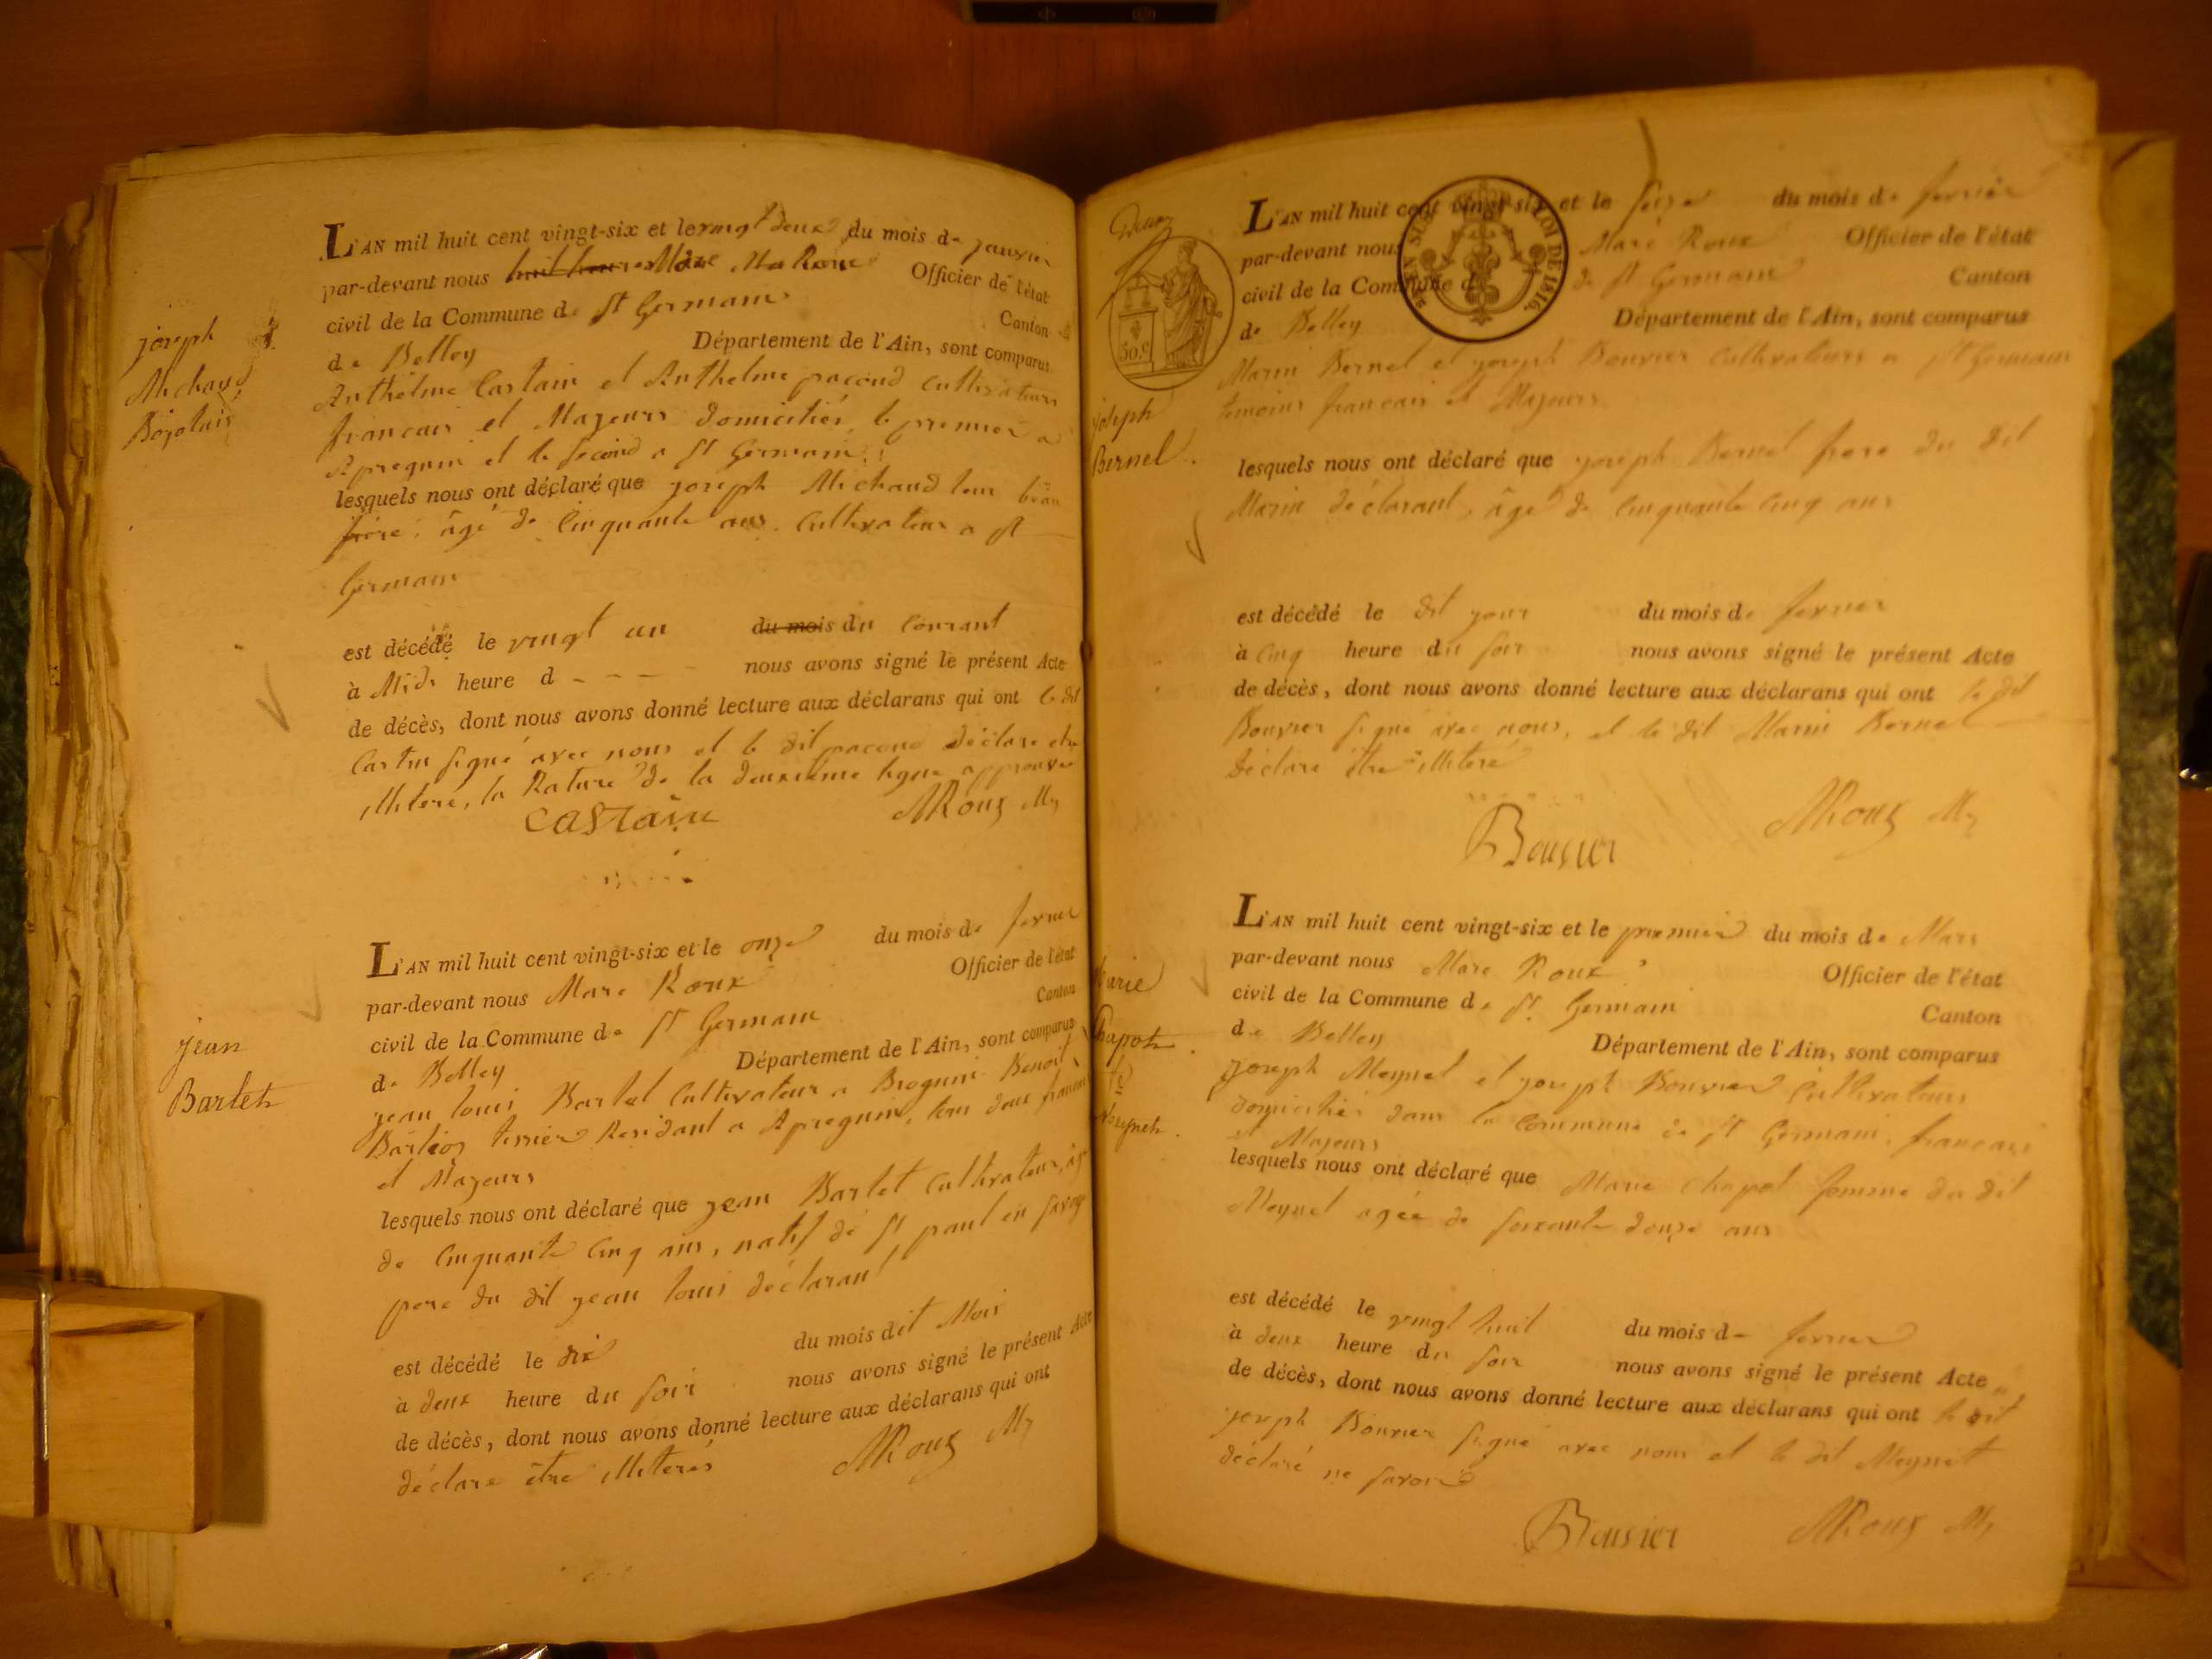 joseph
Michaud
Bojolais
L'AN mil huit cent vingt-six et le vingt deux du mois de janvier
par-devant nous Marc Roux Officier de l'état
civil de la Commune de St Germain Canton
de Belley Département de l'Ain, sont comparus
Anthelme Castain et Anthelme pacoud cultivateurs
francais et Majeurs domiciliés, le premier a
Apregnin et le second a St Germain
lesquels nous ont déclaré que joseph Michaud leur beau
frère, âgé de Cinquante ans, Cultivateur a St
Germain
est décédé le vingt un du mois du Courant
à Midi heure d - - - nous avons signé le présent Acte
de décès, dont nous avons donné lecture aux déclarans qui ont le dit
Castin signé avec nous et le dit pacoud déclare etre
illiteré, la Rature de la deuxième ligne approuvée
CASTAin MRoux My
jean
Bartet
L'AN mil huit cent vingt-six et le onze du mois de fevrier
par-devant nous Marc Roux Officier de l'état
civil de la Commune de St Germain Canton
de Belley Département de l'Ain, sont comparus
jean louis Bartet Cultivateur a Brognin Benoit
Tessier Residant a Apregnin, tous deux francais
et Majeurs
lesquels nous ont déclaré que jean Bartet Cultivateur, âgé
de Cinquante Cinq ans, natif de St paul en savoye
pere du dit jean louis déclarant
est décédé le dix du mois dit Mois
à deux heure du soir nous avons signé le présent Acte
de décès, dont nous avons donné lecture aux déclarans qui ont
déclare être illiterés MRoux My
50.c
EN SUS LOI DE 1816.
joseph
Bernel.
L'AN mil huit cent vingt-six et le seize du mois de fevrier
par-devant nous Marc Roux Officier de l'état
civil de la Commune de St Germain Canton
de Belley Département de l'Ain, sont comparus
Marin Bernel et joseph Bouvier Cultivateurs a St Germain
temoins francais et Majeurs
lesquels nous ont déclaré que joseph Bernel frere du dit
Marin déclarant, âgé de Cinquante Cinq ans
est décédé le dit jour du mois de fevrier
à Cinq heure du soir nous avons signé le présent Acte
de décès, dont nous avons donné lecture aux déclarans qui ont le dit
Bouvier signé avec nous, et le dit Marin Bernel
déclare être illiteré
Bouvier MRoux My
Marie
Chapot
fe
Meynet.
L'AN mil huit cent vingt-six et le premier du mois de Mars
par-devant nous Marc Roux Officier de l'état
civil de la Commune de St. Germain Canton
de Belley Département de l'Ain, sont comparus
joseph Meynet et joseph Bouvier Cultivateurs
domiciliés dans la Commune de St Germain, francais
et Majeurs
lesquels nous ont déclaré que Marie Chapot femme du dit
Meynet agée de soixante douze ans
est décédé le vingt huit du mois de fevrier
à deux heure du soir nous avons signé le présent Acte
de décès, dont nous avons donné lecture aux déclarans qui ont le dit
joseph Bouvier signé avec nous et le dit Meynet
déclaré ne savoir
Bouvier MRoux My